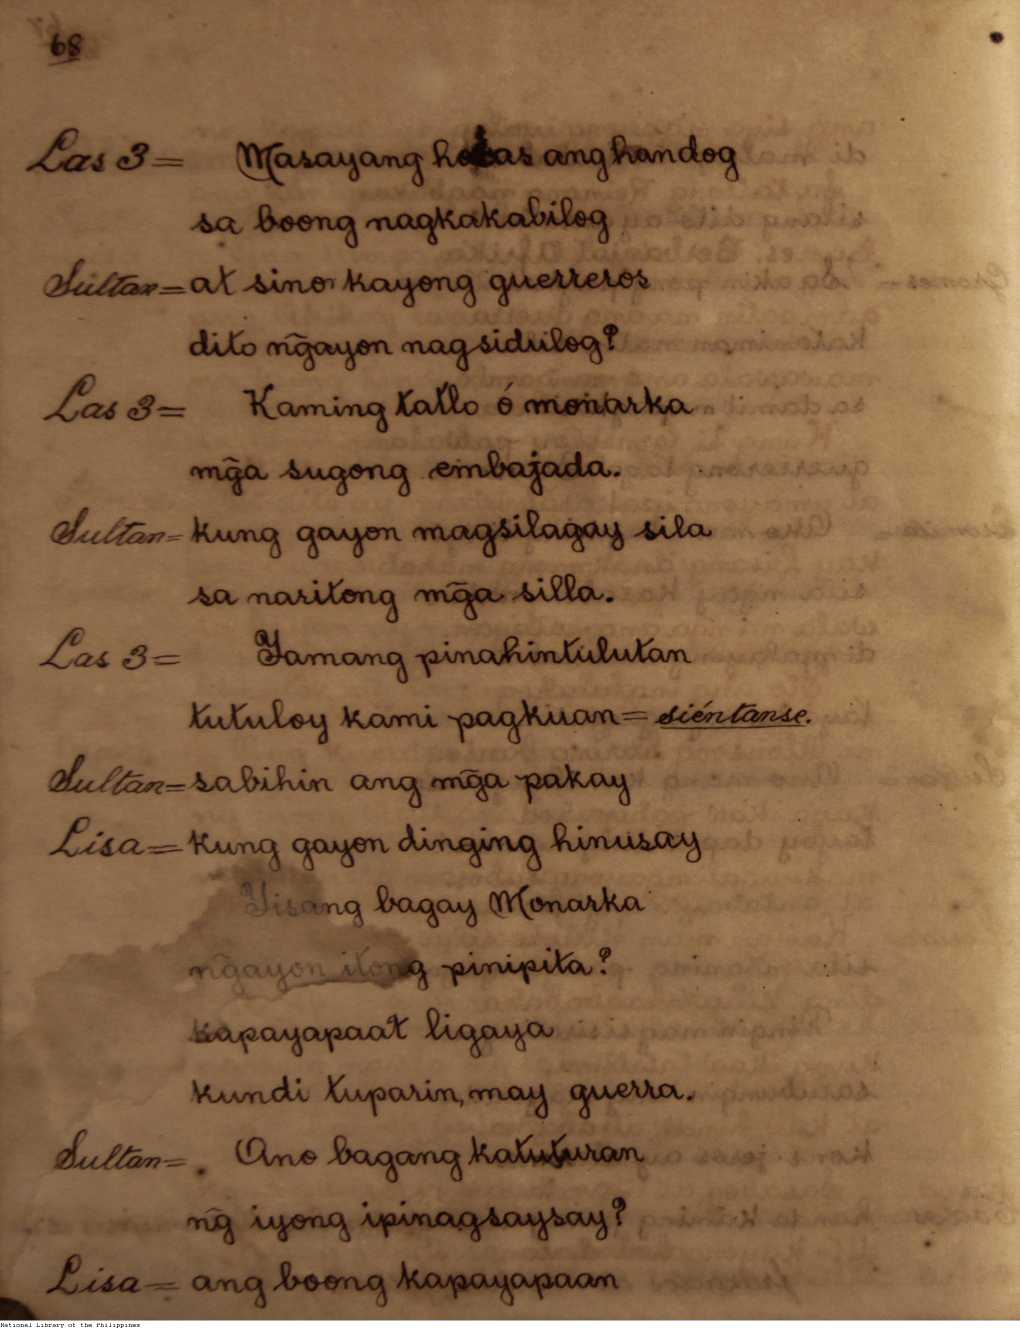 68
Las 3= Masayang horas ang handog
sa boong nagkakabilog
Sultan= at sino kayong guerreros
dito ng̃ayon nagsidulog?
Las 3= Kaming tatlo ó monarka
mg̃a sugong embajada.
Sultan= kung gayon magsilagay sila
sa naritong mg̃a silla.
Las 3= Yamang pinahintulutan
tutuloy kami pagkuan= siéntanse.
Sultan= sabihin ang mg̃a pakay
Lisa= kung gayon dinging hinusay
Yisang bagay Monarka
ng̃ayon itong pinipita?
kapayapaat ligaya
kundi tuparin, may guerra.
Sultan= Ano bagang katuturan
ng̃ iyong ipinagsaysay?
Lisa= ang boong kapayapaan
National Library of the Philippines